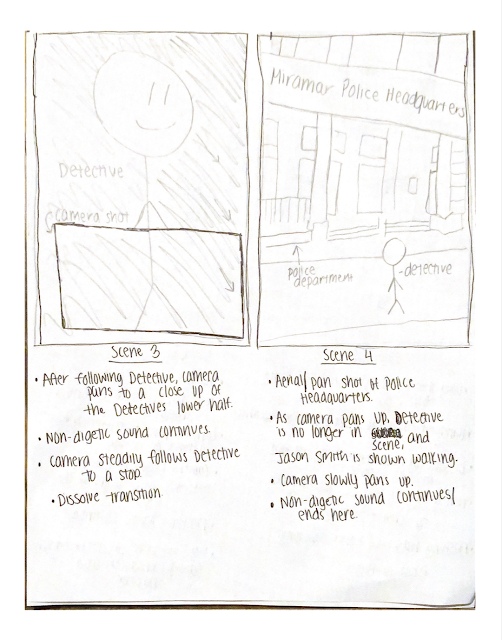 Detective
camera shot
Miramar Police Headquarters
police
department
-detective
Scene 3
• After following Detective, camera
pans to a close up of
the Detectives lower half.
• Non-digetic sound continues.
• Camera steadily follows Detective
to a stop.
• Dissove transition
Scene 4
• Aerial/pan shot of Police
Headquarters.
• As camera pans up, Detective
is no longer in
scene, and
Jason Smith is shown walking.
• Camera slowly pans up.
• Non-digetic sound continues/
ends here.